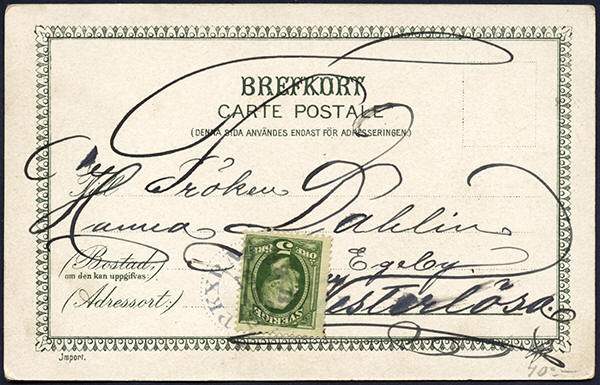 BREFKORT
CARTE POSTALE
(DENNA SIDA ANVÄNDES ENDAST FÖR ADRESSERINGEN.)
Till Fröken
Hanna Dahlin
(Bostad, Egeby.
om den kan uppgifvas:)
(Adressort:) Vesterlösa.
5 ÖRE
SVERIGE
PKXP
Import.
40:-